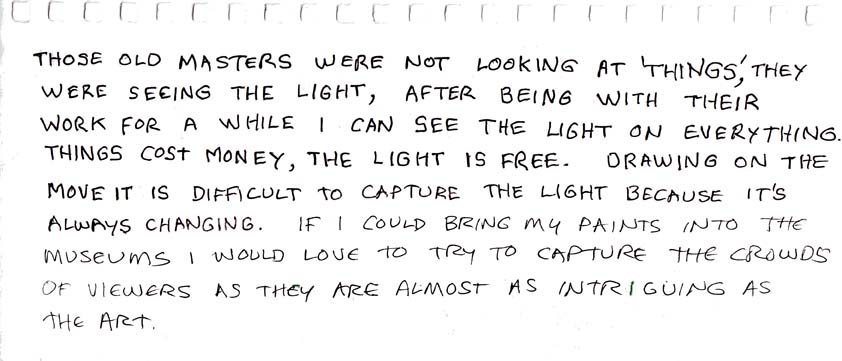 THOSE OLD MASTERS WERE NOT LOOKING AT 'THINGS', THEY
WERE SEEING THE LIGHT, AFTER BEING WITH THEIR
WORK FOR A WHILE I CAN SEE THE LIGHT ON EVERYTHING.
THINGS COST MONEY, THE LIGHT IS FREE. DRAWING ON THE
MOVE IT IS DIFFICULT TO CAPTURE THE LIGHT BECAUSE IT'S
ALWAYS CHANGING. IF I COULD BRING MY PAINTS INTO THE
MUSEUMS I WOULD LOVE TO TRY TO CAPTURE THE CROWDS
OF VIEWERS AS THEY ARE ALMOST AS INTRIGUING AS
THE ART.